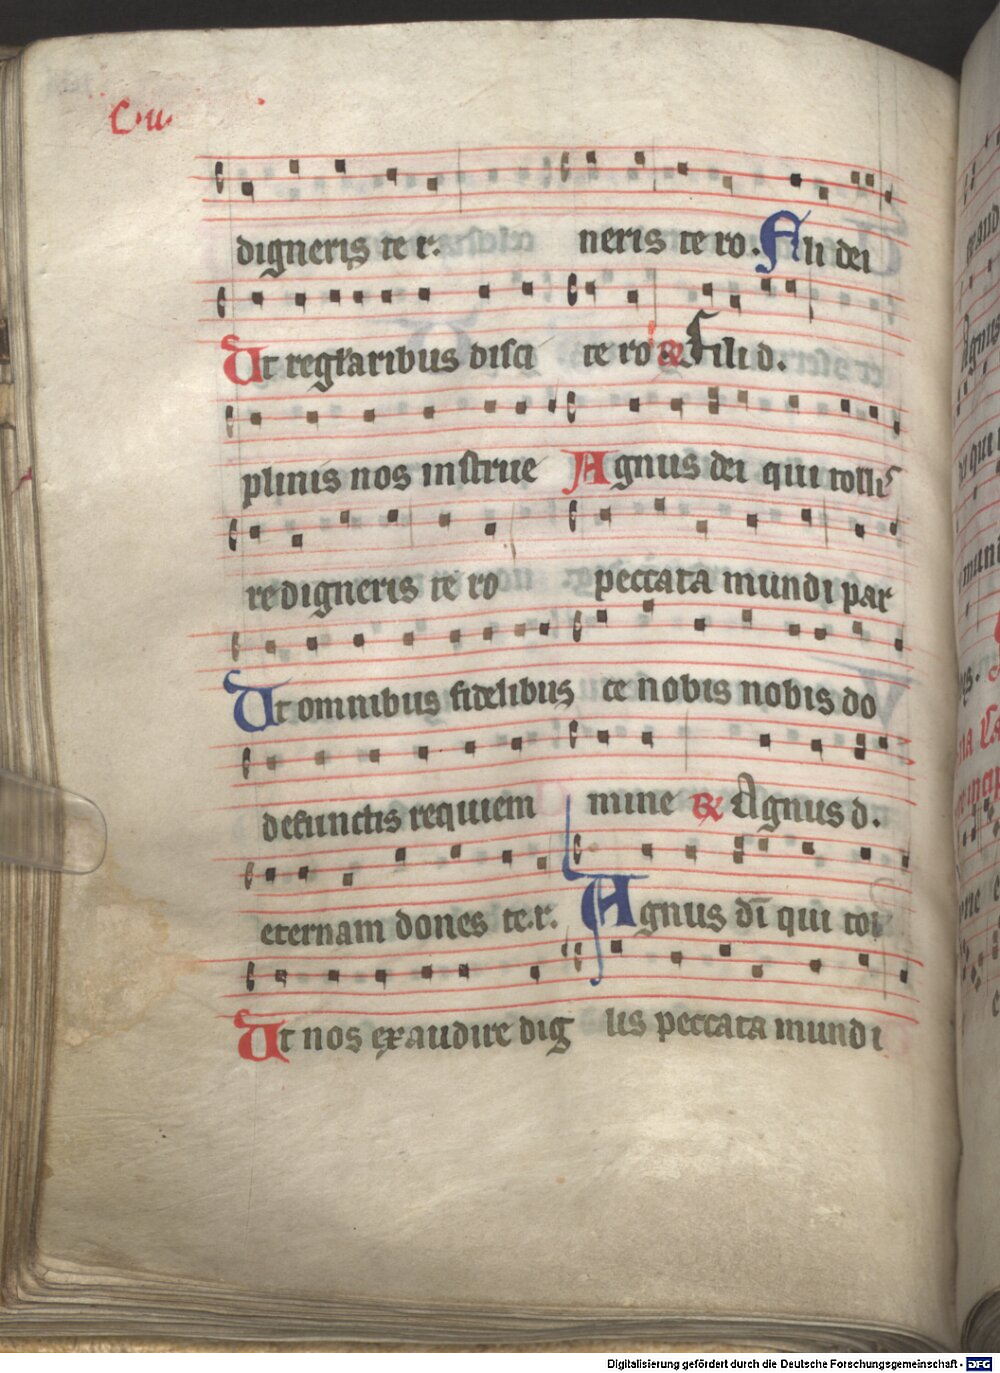 C.iii
digneris te r.
Ut reglaribus disci
plinis nos instrue
re digneris te ro
Ut omnibus fidelibus
defunctis requiem
eternam dones te.r.
Ut nos exaudire dig
neris te ro. Fili dei
te ro ℟ Fili d.
Agnus dei qui tollis
peccata mundi par
ce nobis nobis do
mine ℟ Agnus d.
Agnus dī qui tol
lis peccata mundi
Digitalisierung gefördert durch die Deutsche Forschungsgemeinschaft - DFG